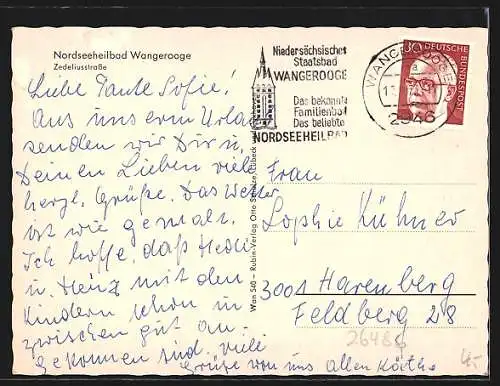 Nordseeheilbad Wangerooge
Zedeliusstraße
Liebe Tante Sofie!
Aus unserm Urlaub
senden wir Dir u.
Deinen Lieben viele
herzl. Grüße. Das Wetter
ist wie gemalt.
Ich hoffe, daß Hedi
u. Heinz mit den
Kindern schon in
zwischen gut an-
gekommen sind. Viele
Grüße von uns allen Käthe
Wan 540 - Rubin-Verlag Otto Schütze, Lübeck
Niedersächsisches
Staatsbad
WANGEROOGE
Das bekannte
Familienbad
Das beliebte
NORDSEEHEILBAD
WANGEROOGE
2946
30
DEUTSCHE
BUNDESPOST
Frau
Sophie Kühner
3001 Harenberg
Feldberg 28
26486